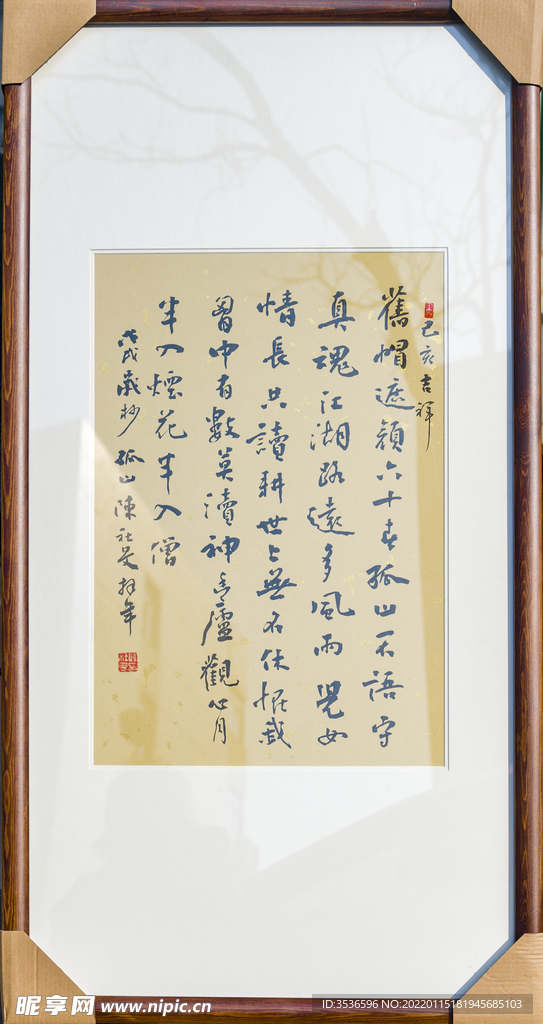 己亥吉祥
舊帽遮顏六十春孤山不語守
真魂江湖路遠多風雨兒女
情長只讀耕世上無名休我
胸中有數莫瀆神廬觀心月
半入煙花半入僧
戊戌歲抄孤山陳社拜年
昵享网 www.nipic.cn
ID:3536596 NO:20220115181945685103